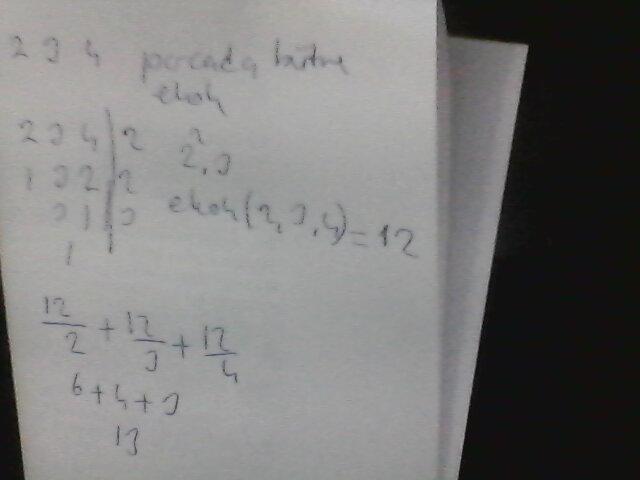 2 3 4 parçada
ekok
2 3 4 | 2
1 3 2 | 2
3 1 | 3
1
2².3
ekok(2,3,4)=12
12/2 + 12/3 + 12/4
6+4+3
13